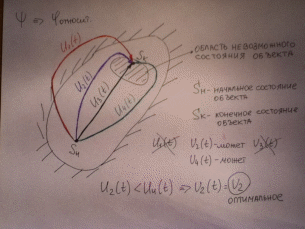 Ψ => Ψотност.
U₁(t)
Sк
U₂(t)
U₃(t)
U₄(t)
Sн
ОБЛАСТЬ НЕВОЗМОЖНОГО
СОСТОЯНИЯ ОБЪЕКТА.
Sн - НАЧАЛЬНОЕ СОСТОЯНИЕ
ОБЪЕКТА
Sк - КОНЕЧНОЕ СОСТОЯНИЕ
ОБЪЕКТА.
U₁(t) U₂(t) - МОЖЕТ U₃(t)
U₄(t) - МОЖЕТ
U₂(t) < U₄(t) => U₂(t) = U₂
ОПТИМАЛЬНОЕ